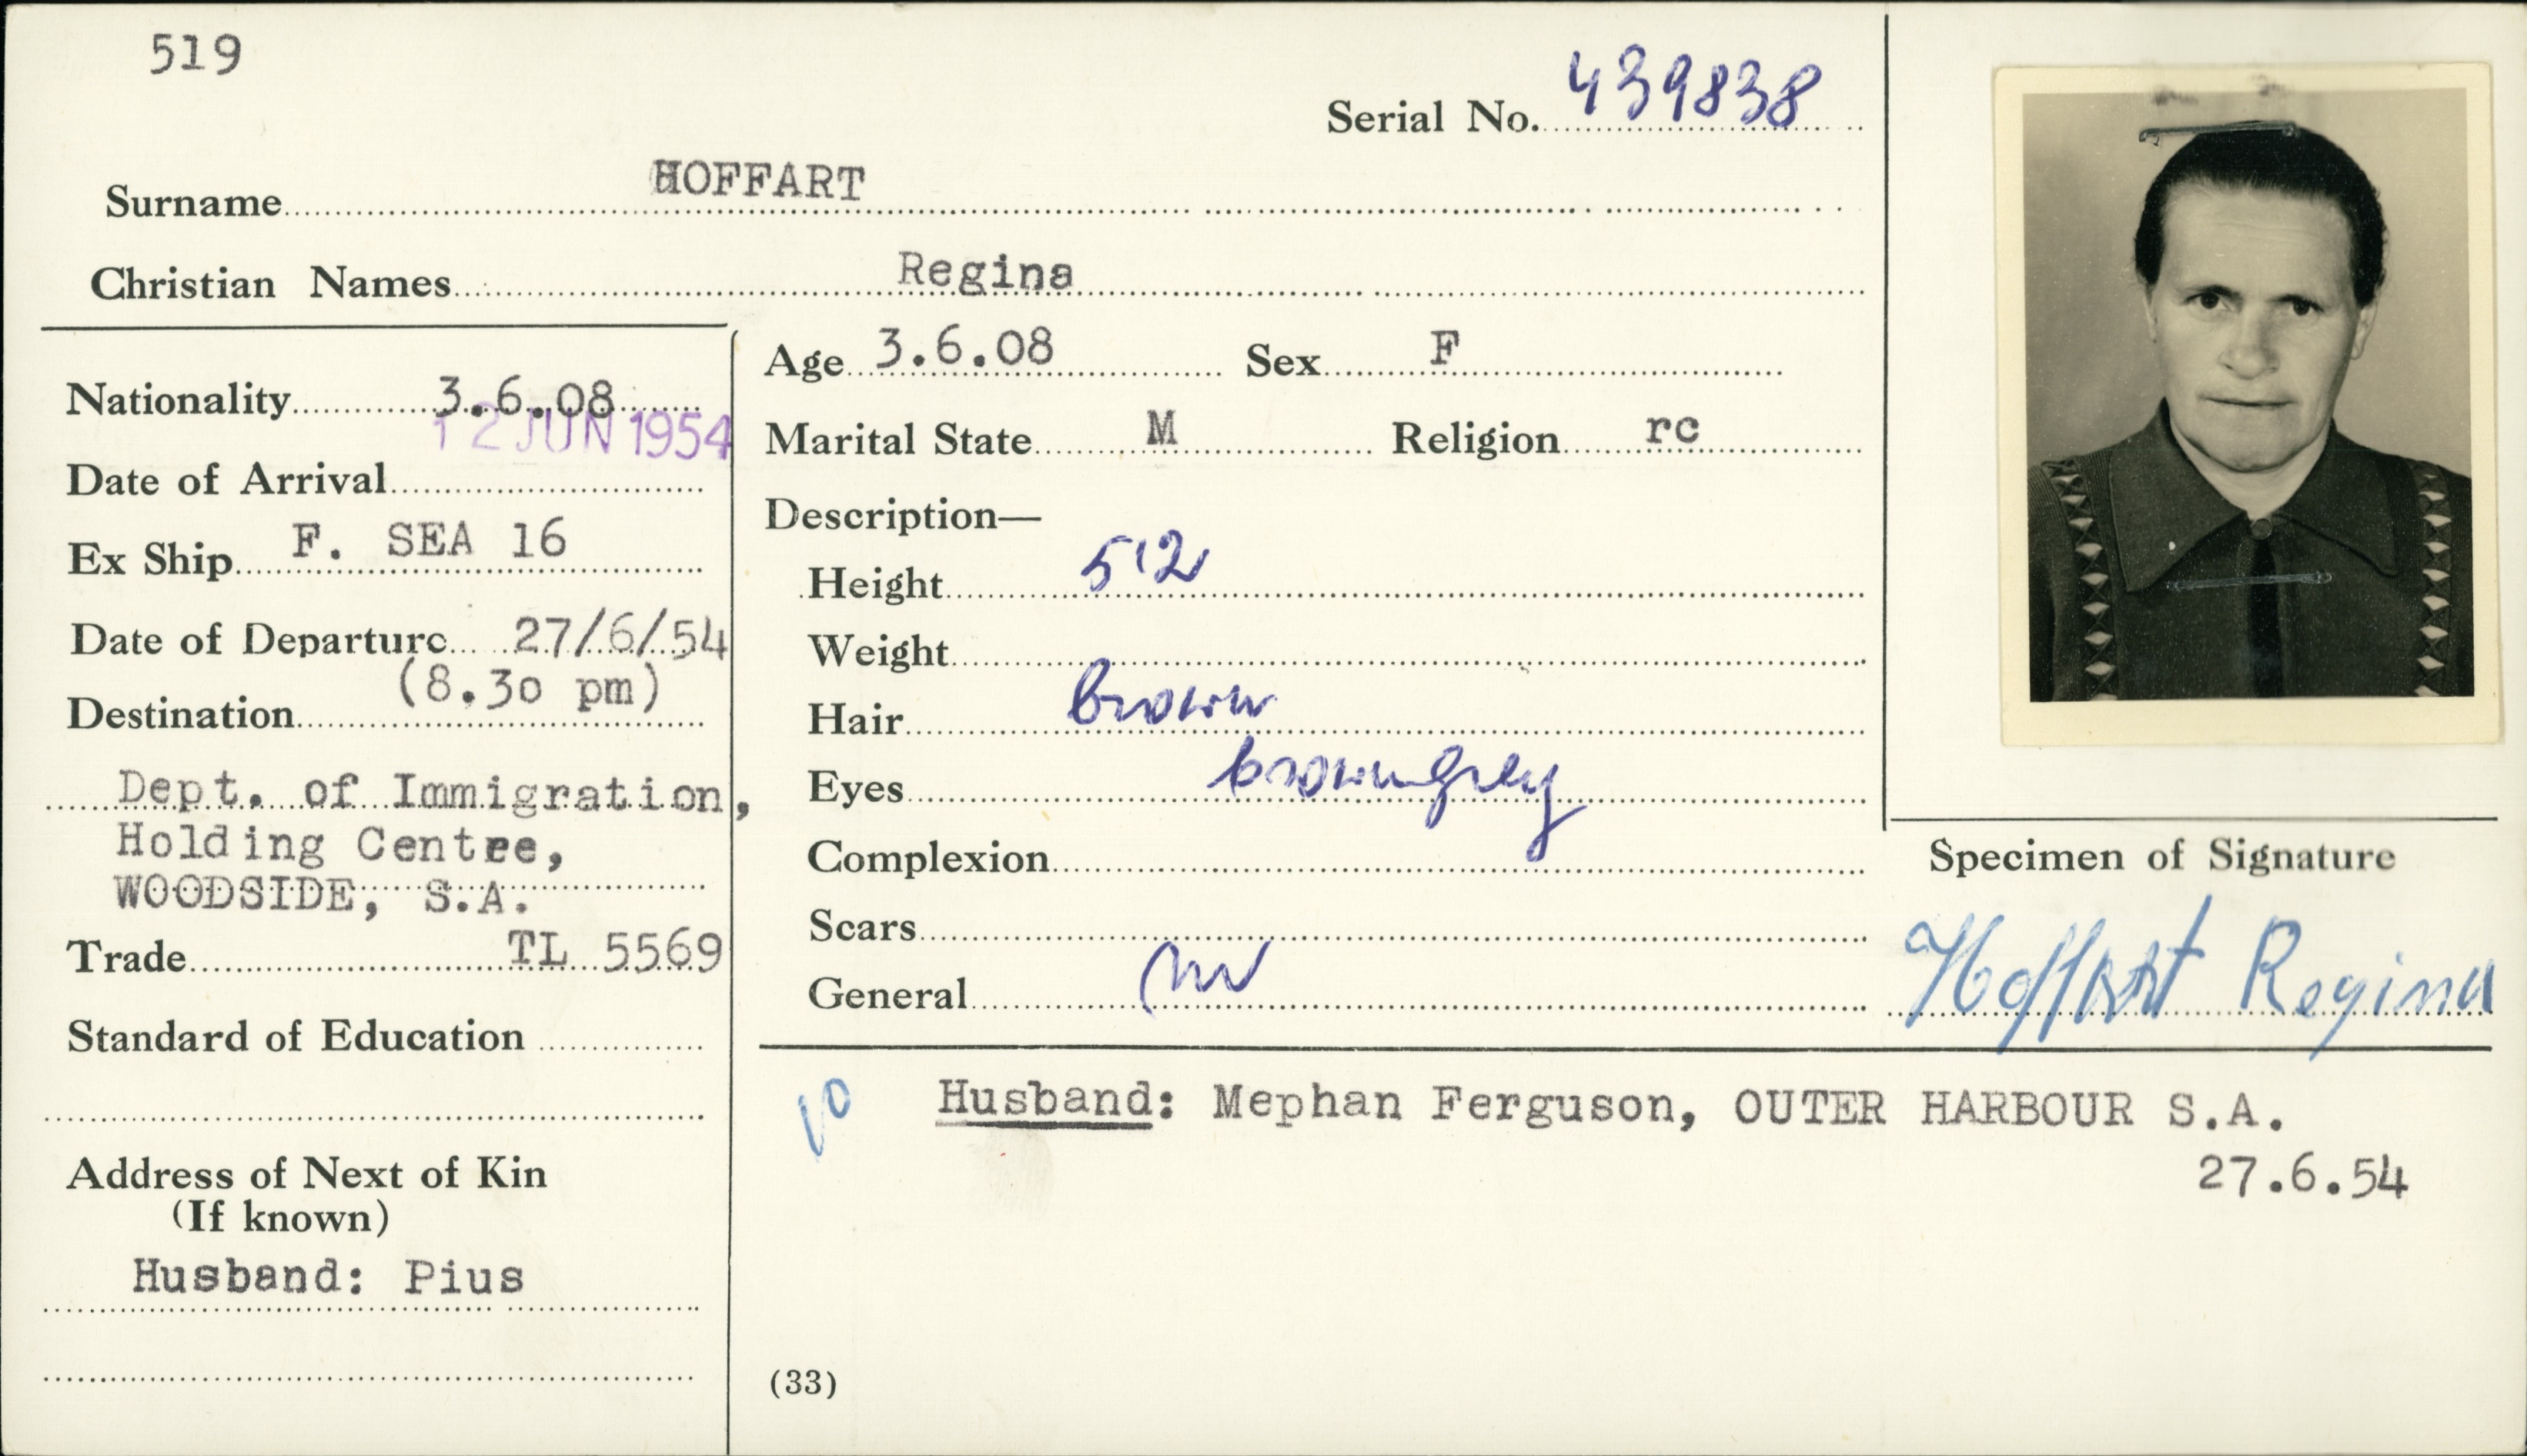 519
Serial No. 439838
Surname HOFFART
Christian Names Regina
Nationality 3.6.08
12 JUN 1954
Date of Arrival
Ex Ship F. SEA 16
Date of Departure 27/6/54
(8.30 pm)
Destination
Dept. of Immigration,
Holding Centre,
WOODSIDE, S.A.
Trade TL 5569
Standard of Education
Address of Next of Kin
(If known)
Husband: Pius
Age 3.6.08 Sex F
Marital State M Religion rc
Description—
Height 5'2
Weight
Hair brown
Eyes browngrey
Complexion
Scars
General
Specimen of Signature
Hoffart Regina
Husband: Mephan Ferguson, OUTER HARBOUR S.A.
27.6.54
(33)